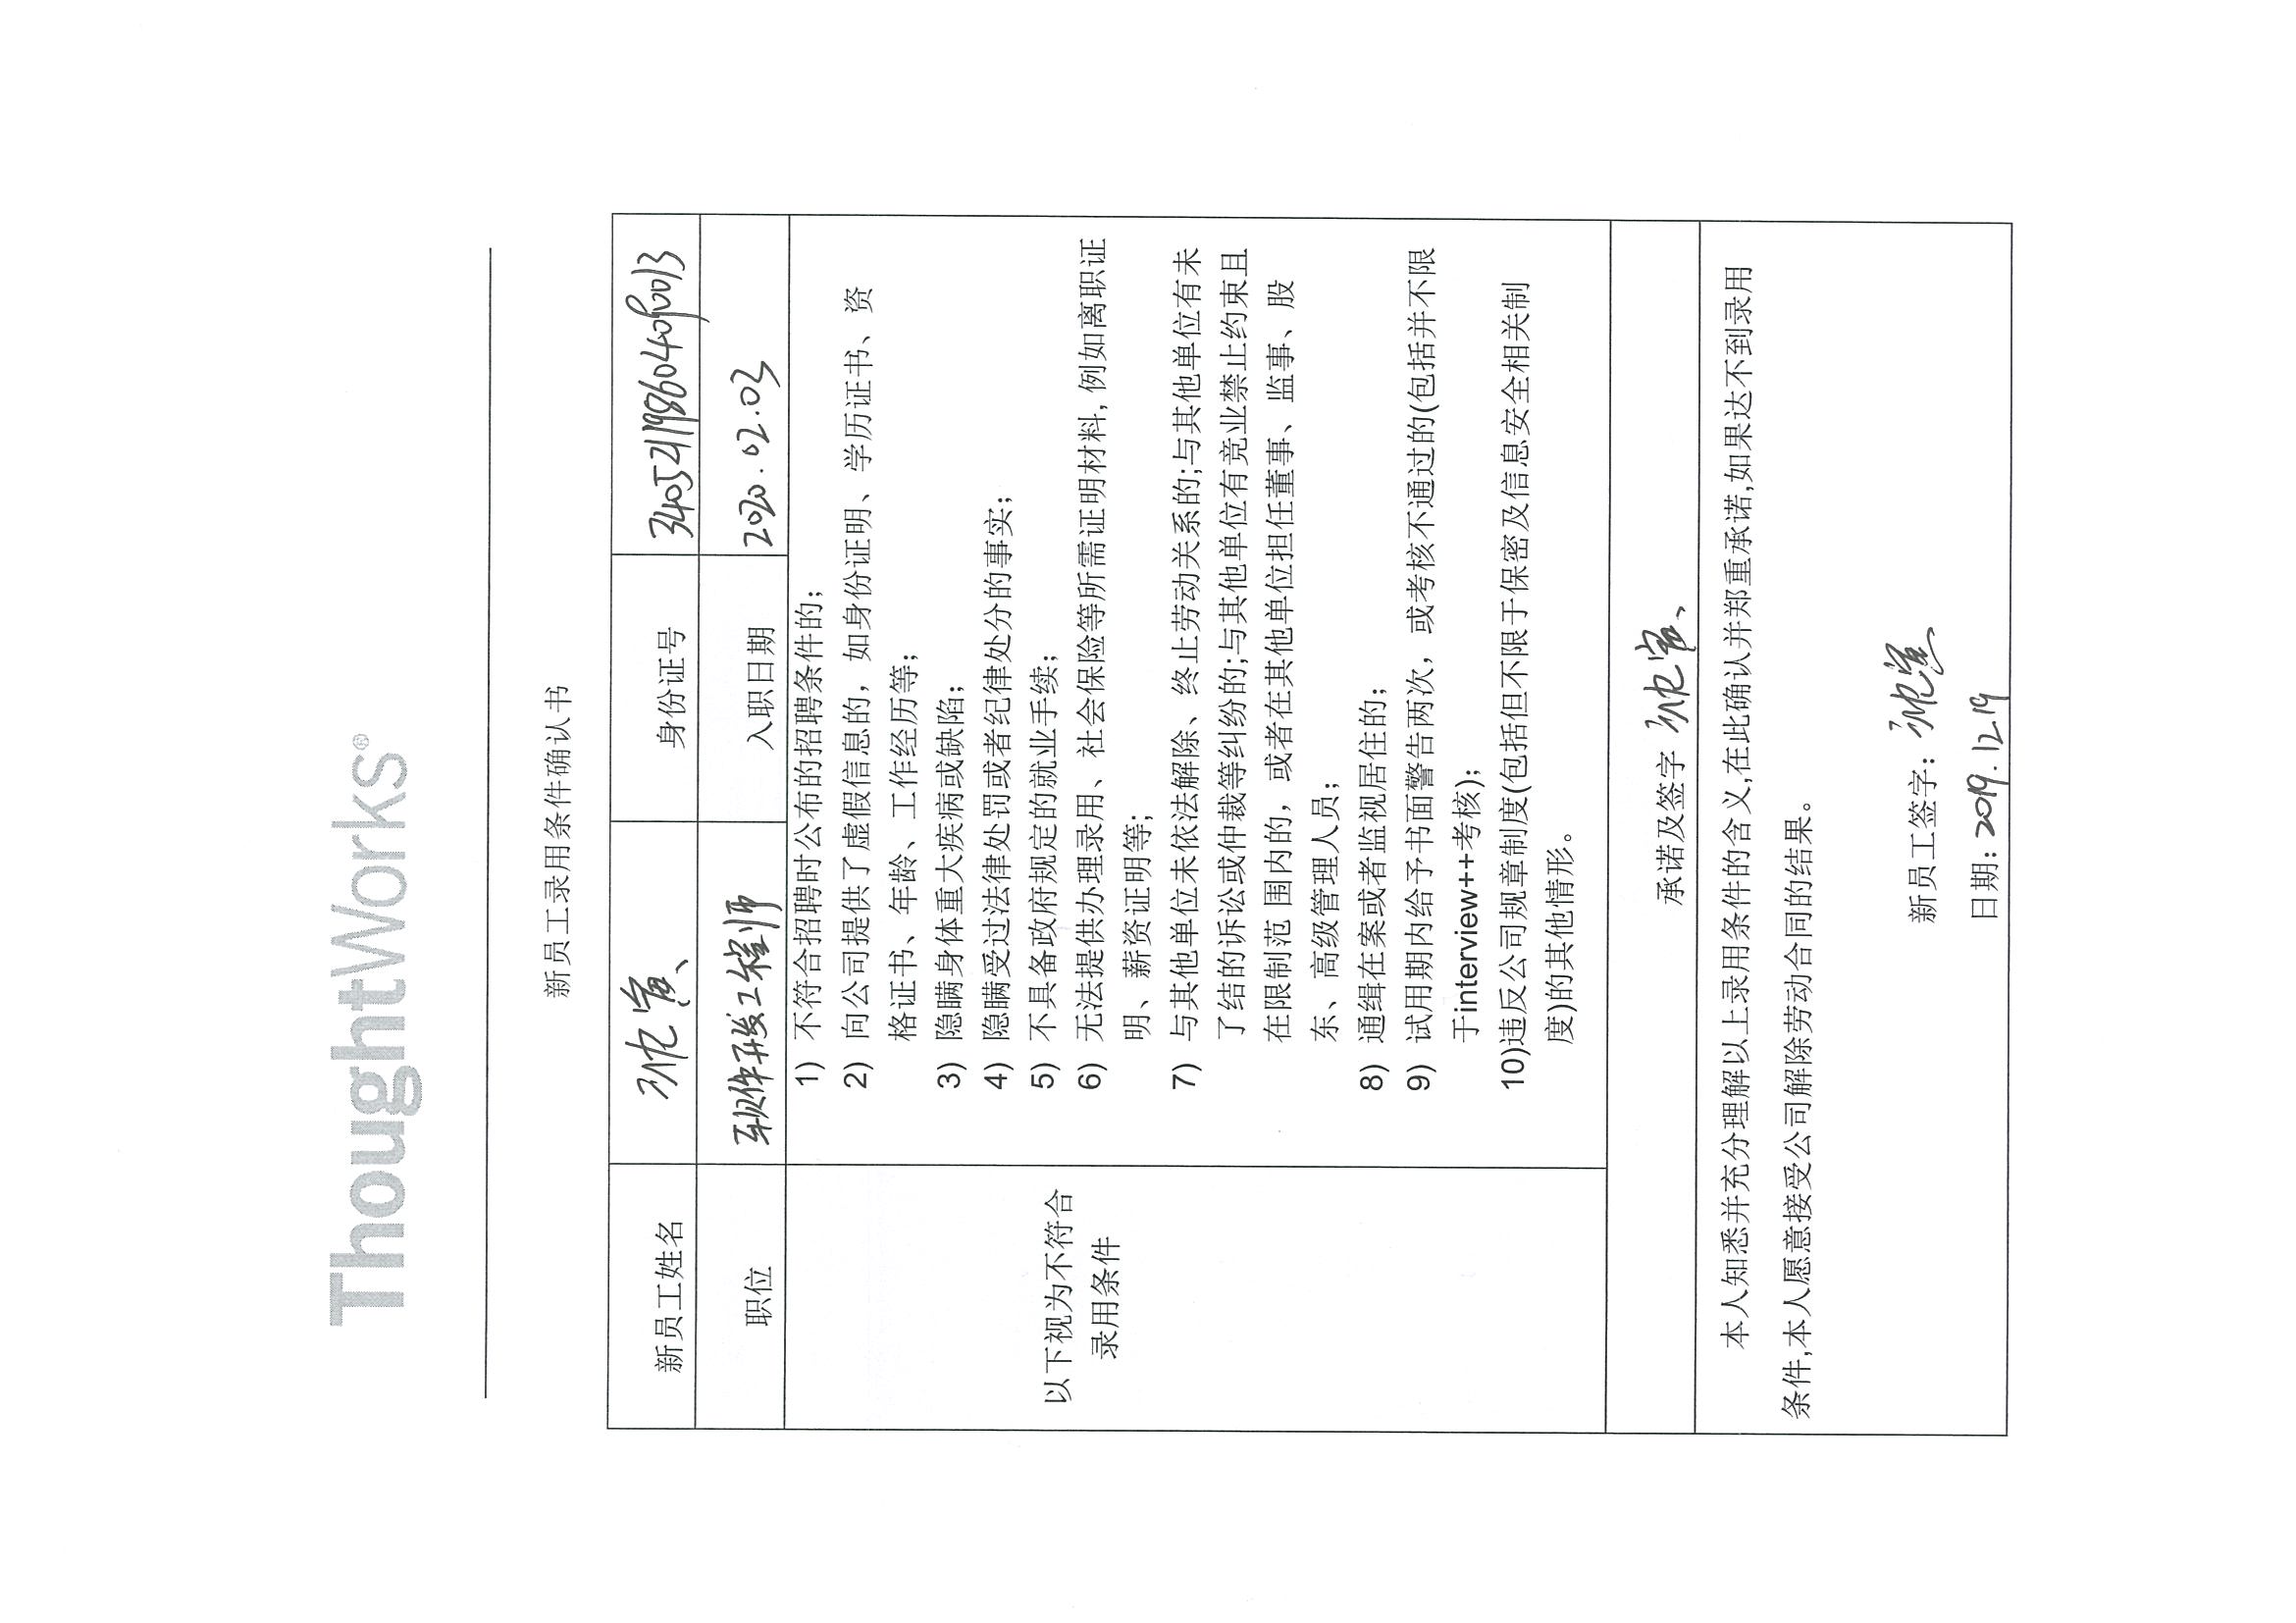 ThoughtWorks®
新员工录用条件确认书
新员工姓名 身份证号
职位 软件开发工程师 入职日期 2020.02.03
以下视为不符合
录用条件
1) 不符合招聘时公布的招聘条件的;
2) 向公司提供了虚假信息的，如身份证明、学历证书、资
格证书、年龄、工作经历等;
3) 隐瞒身体重大疾病或缺陷;
4) 隐瞒受过法律处罚或者纪律处分的事实;
5) 不具备政府规定的就业手续;
6) 无法提供办理录用、社会保险等所需证明材料,例如离职证
明、薪资证明等;
7) 与其他单位未依法解除、终止劳动关系的;与其他单位有未
了结的诉讼或仲裁等纠纷的;与其他单位有竞业禁止约束且
在限制范 围内的，或者在其他单位担任董事、监事、股
东、高级管理人员;
8) 通缉在案或者监视居住的;
9) 试用期内给予书面警告两次，或考核不通过的(包括并不限
于interview++考核);
10)违反公司规章制度(包括但不限于保密及信息安全相关制
度)的其他情形。
承诺及签字
本人知悉并充分理解以上录用条件的含义,在此确认并郑重承诺,如果达不到录用
条件,本人愿意接受公司解除劳动合同的结果。
新员工签字:
日期: 2019.12.19